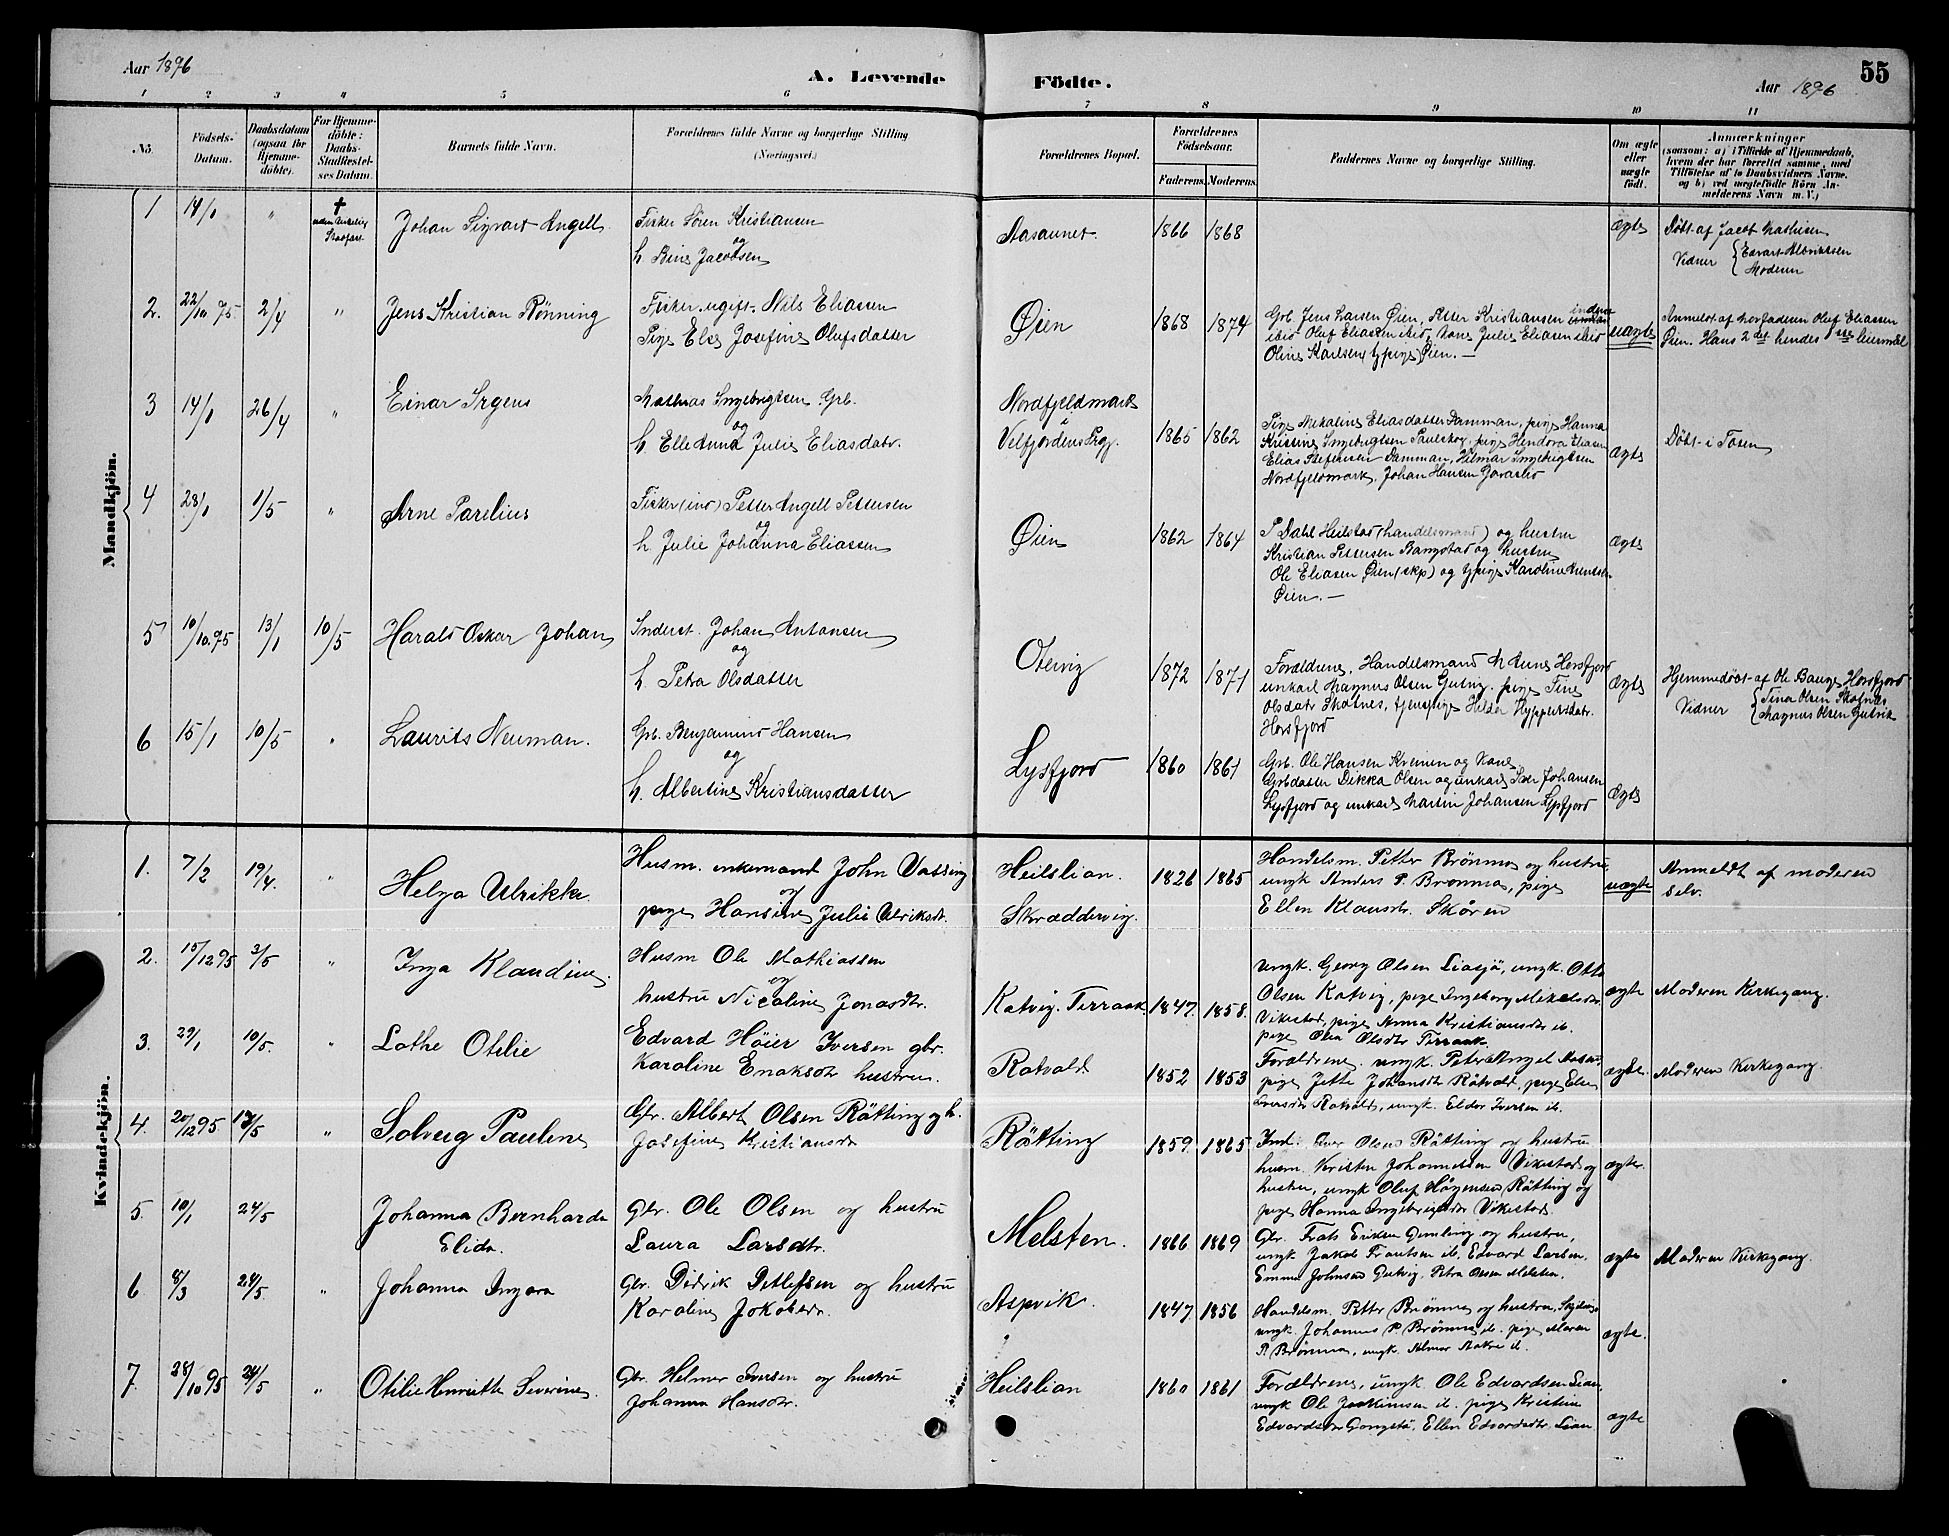 Aar 1896
A. Levende
Födte.
Aar 1896
55
1 2 3 4 5 6 7 8 9 10 11
No.
Födsels-
Datum.
Daabsdatum
(ogsaa for
Hjemme-
döbte).
For Hjemme-
döbte:
Daabs-
Stadfæstel-
ses Datum.
Barnets fulde Navn.
Forældrenes fulde Navne og borgerlige Stilling
(Næringsvei.)
Forældrenes Bopæl.
Forældrenes
Födselsaar.
Faderens. Moderens.
Faddernes Navne og borgerlige Stilling.
Om ægte
eller
uægte
födt.
Anmærkninger
(saasom: a) i Tilfælde af Hjemmedaab,
hvem der har forrettet samme, med
Tilföielse af to Daabsvidners Navne,
og b) ved uægtefödte Börn An-
melderens Navn m. V.)
Mandkjön.
1 14/1 " †
uden kirkelig
Stadfæst.
Johan Sigvart Angell.
Fisker Sören Kristiansen
og
h. Bine Jacobsen
Aasaunet.
1866 1868
ægte
Döbt af Jacob Mathisen
Vidner { Edvart Albrigtsen
Moderen
2. 22/10.95 2/4 "
Jens Kristian Rønning
Fisker, ugift. Nils Eliassen
Pige Else Josefine Olufsdatter
Øien
1868 1874
Grb. Jens Larsen Øien, Peter Kristiansen inderst
ibid Oluf Eliasen ibid, kone Julie Eliasen ibid
Oline Karlsen tjpige Øien.—
uægte
Anmeldt af morfaderen Oluf Eliassen
Øien. Hans 2det hendes 1ste leiermaal
3 14/1 26/4 "
Einar Irgens
Mathias Ingebrigtsen Grb.
og
h. Elle Anna Julie Eliasdatr.
Nordfjeldmark
i
Velfjordens Prgj.
1865 1862
Pige Mekaline Eliasdatter Damman, pige Hanna
Kristine Ingebrigtsen Paulskog, pige Hendora Eliasen
Elias Steffensen Damman, Hilmar Ingebrigtsen
Nordfjeldmark, Johan Hansen
ægte
Döbt i Tosen
4 28/1 1/5 "
Arne Parelius
Fisker (ind) Petter Angell Pettersen
og
h. Julie Johanna Eliassen
Øien
1862 1864
P Dahl Heilstad (handelsmand) og hustru
Kristian Pettersen Bangstad og hustru
Ole Eliasen Øien (skp) og tjpige Karoline
Øien.—
ægte
5 10/10.95 13/1 10/5
Harald Oskar Johan
Inderst. Johan Antonsen
og
h. Petra Olsdatter
Otervig
1872 1871
Forældrene, Handelsmand Horsfjord
unkarl Magnus Olsen Gutvig. pige Tine
Olsdatr Skotnes, tjenpige Helder
Horsfjord
ægte
Hjemmedöbt af Ole Bauge, Horsfjord
Vidner { Tina Olsen Skotnæs
Magnus Olsen Gutvik
6 15/1 10/5 "
Laurits Neuman.
Grb. Benjamin Hansen
og
h. Albertine Kristiansdatter
Lysfjord
1860 1861
Grb. Ole Hansen Kvernen og Kone
Grbdatter Dikka Olsen og unkarl Johansen
Lysfjord og unkarl Martin Johansen Lysfjord
Ægte
Kvindekjön.
1. 7/2 19/4. "
Helga Ulrikke
Husm. enkemand John Vassing
og
pige Hansine Julie Ulriksdt.
Heilslian.
Skræddervig.
1826 1865
Handelsm. Petter Brönmo og hustru
ungk Anders P. Brönmo, pige
Ellen Klausdr. Skören
uægte
Anmeldt af moderen
selv.
2. 15/12 95 3/5 "
Inga Klaudine.
Husm Ole Mathiassen
og
hustru Nicoline Jonasdtr.
Kalvig. Terraak
1847. 1858.
ungk. Georg Olsen Liasjö, ungk. Otto
Olsen Kalvig, pige Ingeborg Mekelsdr.
Vikestad, pige Anna Kristiansdr ib.
pige Olea Olsdtr Terraak.
ægte
Moderen Kirkegang.
3. 29/1 10/5. "
Lothe Otilie
Edvard Höier Iversen gbr.
Karoline Enoksdtr hustru.
Rotvold
1852 1853
Forældrene. ungk. Peter Angel Aasau,
pige Jette Johansdt. Råtvold, pige Else
Iversdr Rotvold, ungk. Eldor Iversen ib.
ægte.
Moderen Kirkegang.
4. 20/12 95 13/5 "
Solveig Pauline
Gbr. Albert Olsen Råtting og h.
Josefine Kristiansdr
Råtting
1859. 1865
Ind. Iver Olsen Råtting og hustru
husm. Kristen Johannessen Vikestad og
hustru, ungk Oluf Hågensen Råtting og
pige Hanna Ingebrigtsdr Vikestad.
ægte.
5. 10/1 24/5
Johanna Bernharda
Elida.
Gbr. Ole Olsen og hustru
Laura Larsdtr.
Melsten.
1866 1869
Gbr. Frats Eriksen Gimling og hustru,
ungk Jakob Frantsen ib, Edvard Larsen,
Emma Johnsen Gutvig, Petra Olsen Melsten.
ægte
Moderen Kirkegang.
6 8/3 24/5. "
Johanna Ingara
Gbr. Didrik Detlefsen og hustru
Karoline Jakobsdr.
Aspvik.
1847. 1856
Handelsm. Petter Brönmo og hustru,
ungk. Johannes P Brönmo ib. pige Maren
P. Brönmo, ungk. ib.
ægte.
7. 28/10 95 24/5 "
Otilie Henriette Severine.
Gbr. Helmer Iversen og hustru
Johanna Hansdtr.
Heilslian
1860 1861
Forældrene, ungk Ole Edvardsen Lian,
ungk Ole Joakimsen ib, pige Kristine
Edvardsdr Gongstö, Ellen Edvardsdtr. Lian
ægte